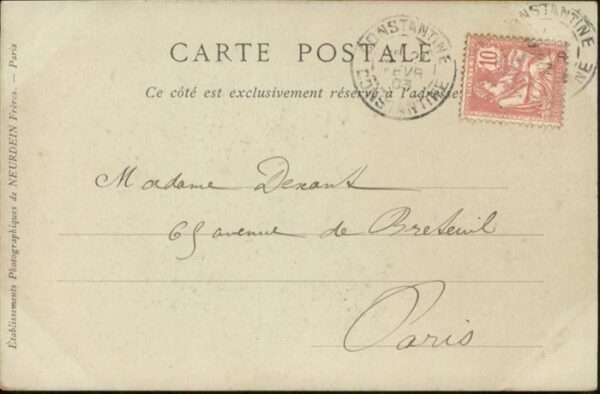 CARTE POSTALE
Ce côté est exclusivement réservé à l'adresse
CONSTANTINE
FEVR
03
CONSTANTINE
10
CONSTANTINE
Madame Dexant
65 avenue de Breteuil
Paris
Établissements Photographiques de NEURDEIN Frères. — Paris